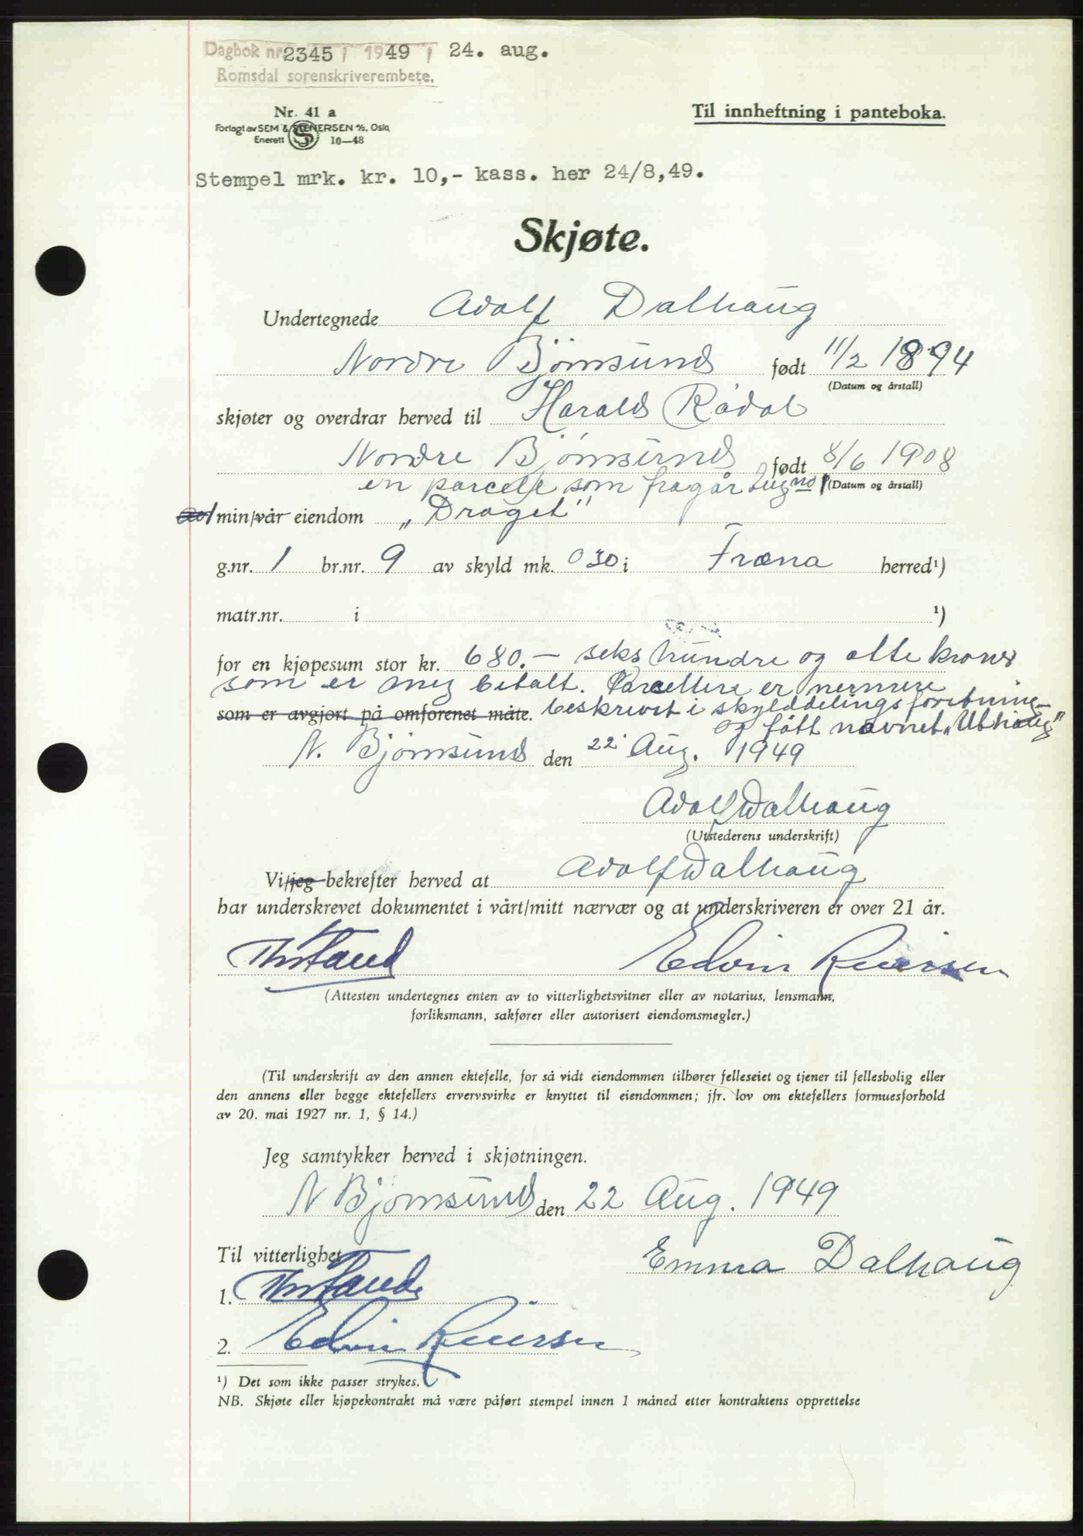 Dagbok nr. 2345 / 1949 / 24. aug.
Romsdal sorenskriverembete.
Nr. 41 a
Til innheftning i panteboka.
Forlagt av SEM & STENERSEN A/S, Oslo
Enerett 10—48
Stempel mrk. kr. 10,- kass. her 24/8,49.
Skjøte.
Undertegnede Adolf Dalhaug
Nordre Bjørnsund født 11/2 1894
(Datum og årstall)
skjøter og overdrar herved til Harald Rødal
Nordre Bjørnsund født 8/6 1908
(Datum og årstall)
en parcelle som fragår
av min/vår eiendom „Draget"
g.nr. 1 br.nr. 9 av skyld mk. 0 30 i Fræna herred¹)
matr.nr. i ¹)
for en kjøpesum stor kr. 680.— seks hundre og otte kroner
som er meg betalt. Parcellere er nermere
som er avgjort på omforenet måte. beskrevet i skylddelingsforetning
og fått navnet „Uthaug"
N. Bjørnsund den 22 Aug. 1949
Adolf Dalhaug
(Utstederens underskrift)
Vi/jeg bekrefter herved at Adolf Dalhaug
har underskrevet dokumentet i vårt/mitt nærvær og at underskriveren er over 21 år.
Edvin
(Attesten undertegnes enten av to vitterlighetsvitner eller av notarius, lensmann,
forliksmann, sakfører eller autorisert eiendomsmegler.)
(Til underskrift av den annen ektefelle, for så vidt eiendommen tilhører felleseiet og tjener til fellesbolig eller
den annens eller begge ektefellers ervervsvirke er knyttet til eiendommen; jfr. lov om ektefellers formuesforhold
av 20. mai 1927 nr. 1, § 14.)
Jeg samtykker herved i skjøtningen.
N Bjørnsund den 22 Aug. 1949
Til vitterlighet
Emma Dalhaug
1.
2. Edvin
¹) Det som ikke passer strykes.
NB. Skjøte eller kjøpekontrakt må være påført stempel innen 1 måned etter kontraktens opprettelse